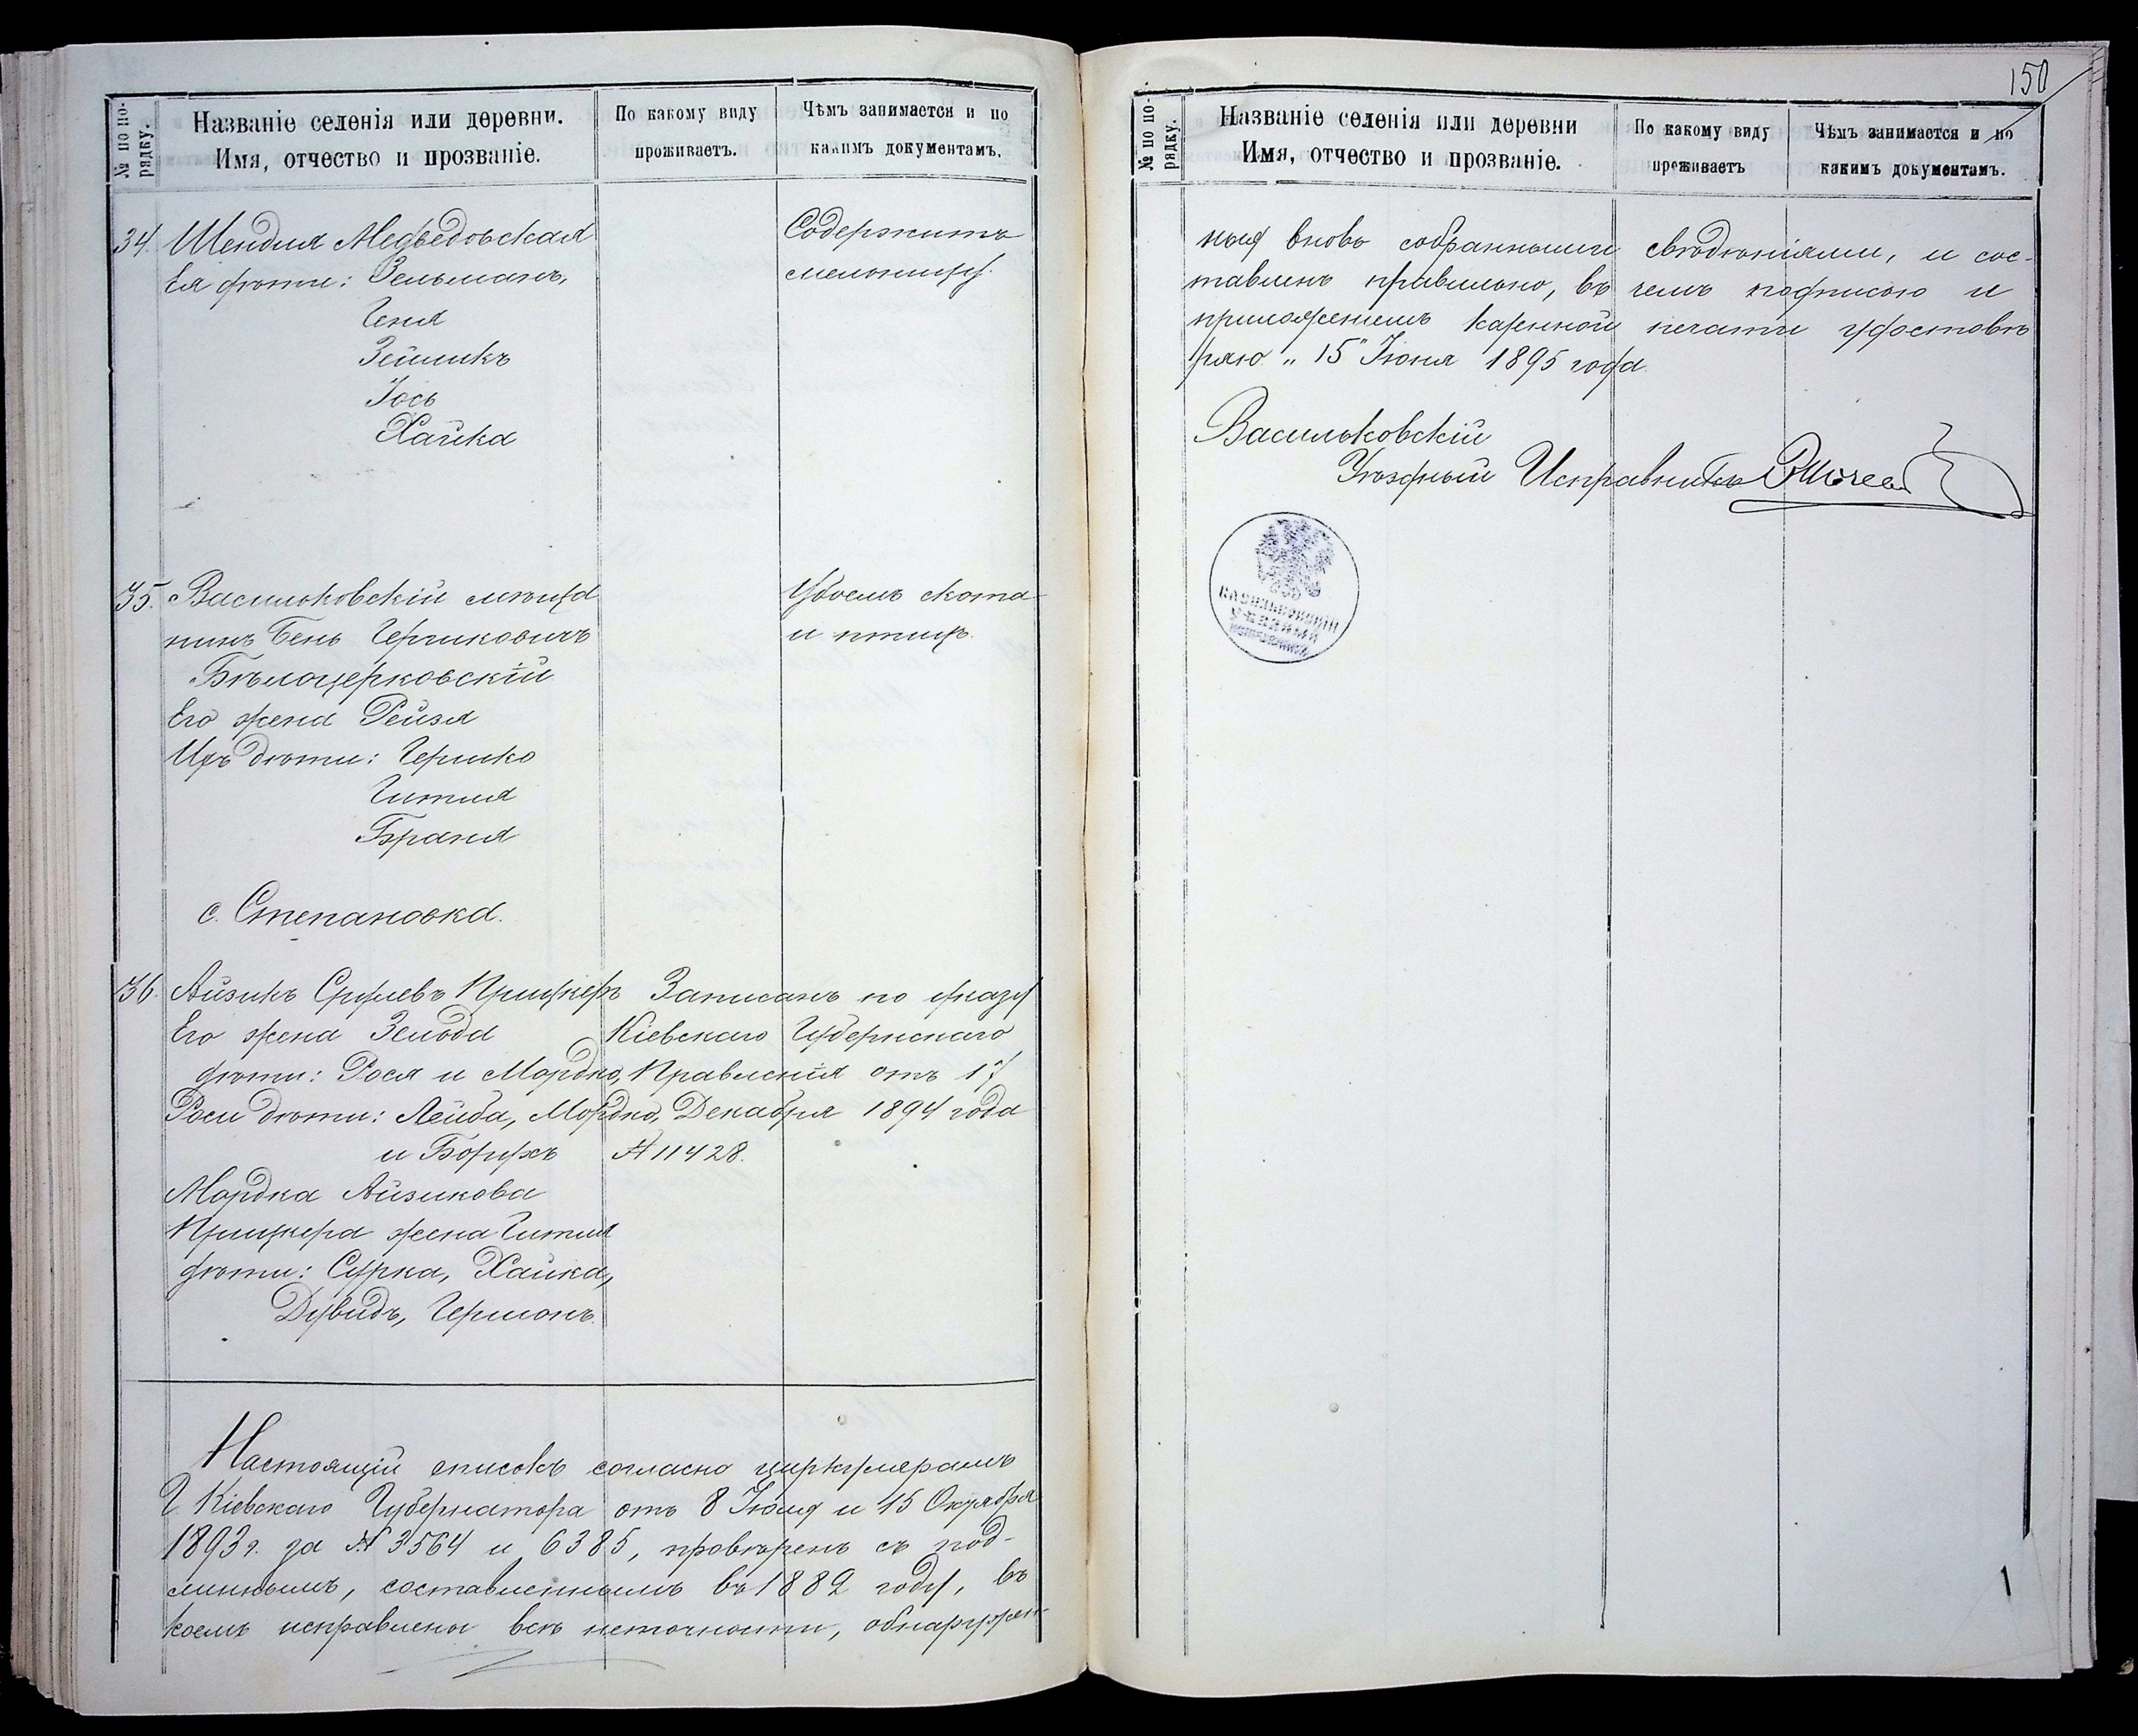 № по по-
рядку.
Названіе селенія или деревни.
Имя, отчество и прозваніе.
По какому виду
проживаетъ.
Чѣмъ занимается и по
какимъ документамъ.
34. Шендля Медведовская
Содержитъ
Ея дѣти: Зельманъ,
мельницу.
Геня
Зейликъ
Іось
Хайка
35. Васильковскій мѣща
Убоемъ скота
нинъ Бень Гершковичъ
и птицъ.
Бѣлоцерковскій
Его жена Рейзя
Ихъ дѣти: Гершко
Гитля
Браня
с. Степановка.
36. Айзикъ Срулевъ Прицкеръ
Записанъ по указу
Его жена Зельда
Кіевскаго Губернскаго
дѣти: Рося и Мордко,
Правленія отъ 17
Роси дѣти: Лейба, Мордко,
Декабря 1894 года
и Борухъ
№ 11428.
Мордка Айзикова
Прицкера жена Гитля
дѣти: Сурка, Хайка,
Дувидъ, Гершонъ.
Настоящій списокъ согласно циркулярамъ
Г. Кіевскаго Губернатора отъ 8 Іюля и 15 Октября
1893 г. за № 3564 и 6385, провѣренъ съ под-
линнымъ, составленнымъ въ 1882 году, въ
коемъ исправлены всѣ неточности, обнаружен-
150
№ по по-
рядку.
Названіе селенія или деревни
Имя, отчество и прозваніе.
По какому виду
проживаетъ
Чѣмъ занимается и по
какимъ документамъ.
ныя вновь собранными свѣдѣніями, и сос-
тавленъ правильно, въ чемъ подписью и
приложеніемъ казенной печати удостовѣ
ряю „15" Іюня 1895 года.
Васильковскій
Уѣздный Исправникъ
ВАСИЛЬКОВСКІЙ
УѢЗДНЫЙ
ИСПРАВНИКЪ